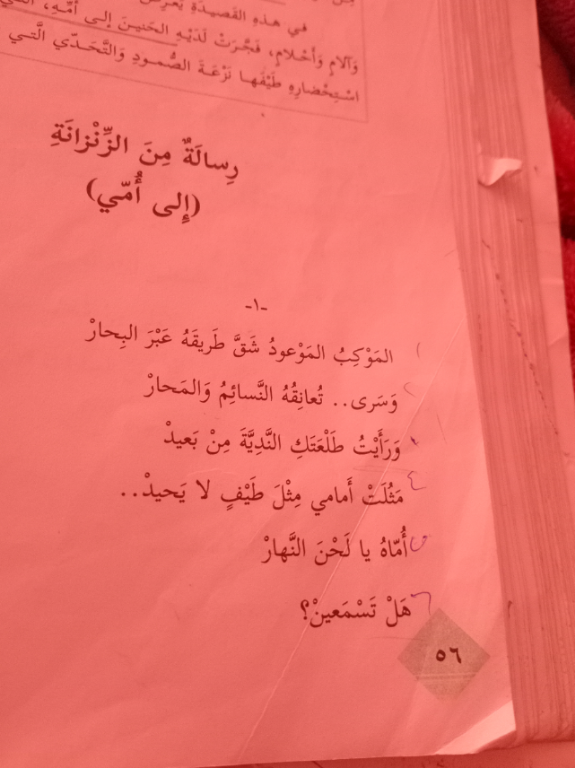 في هذهِ القَصيدَةِ يَعْرِضُ
وَآلامٍ وَأَحْلامٍ، فَجَّرَتْ لَدَيْهِ الحَنينَ إلى أُمِّهِ،
اسْتِحْضارِهِ طَيْفَها نَزْعَةَ الصُّمودِ وَالتَّحَدّي الَّتي
رِسالَةٌ مِنَ الزِّنْزانَةِ
(إِلى أُمّي)
-١-
١ المَوْكِبُ المَوْعودُ شَقَّ طَريقَهُ عَبْرَ البِحارْ
٢ وَسَرى.. تُعانِقُهُ النَّسائِمُ وَالمَحارْ
وَرَأَيْتُ طَلْعَتَكِ النَّدِيَّةَ مِنْ بَعيدْ
٤ مَثُلَتْ أَمامي مِثْلَ طَيْفٍ لا يَحيدْ..
٥ أُمّاهُ يا لَحْنَ النَّهارْ
٦ هَلْ تَسْمَعينْ؟
٥٦